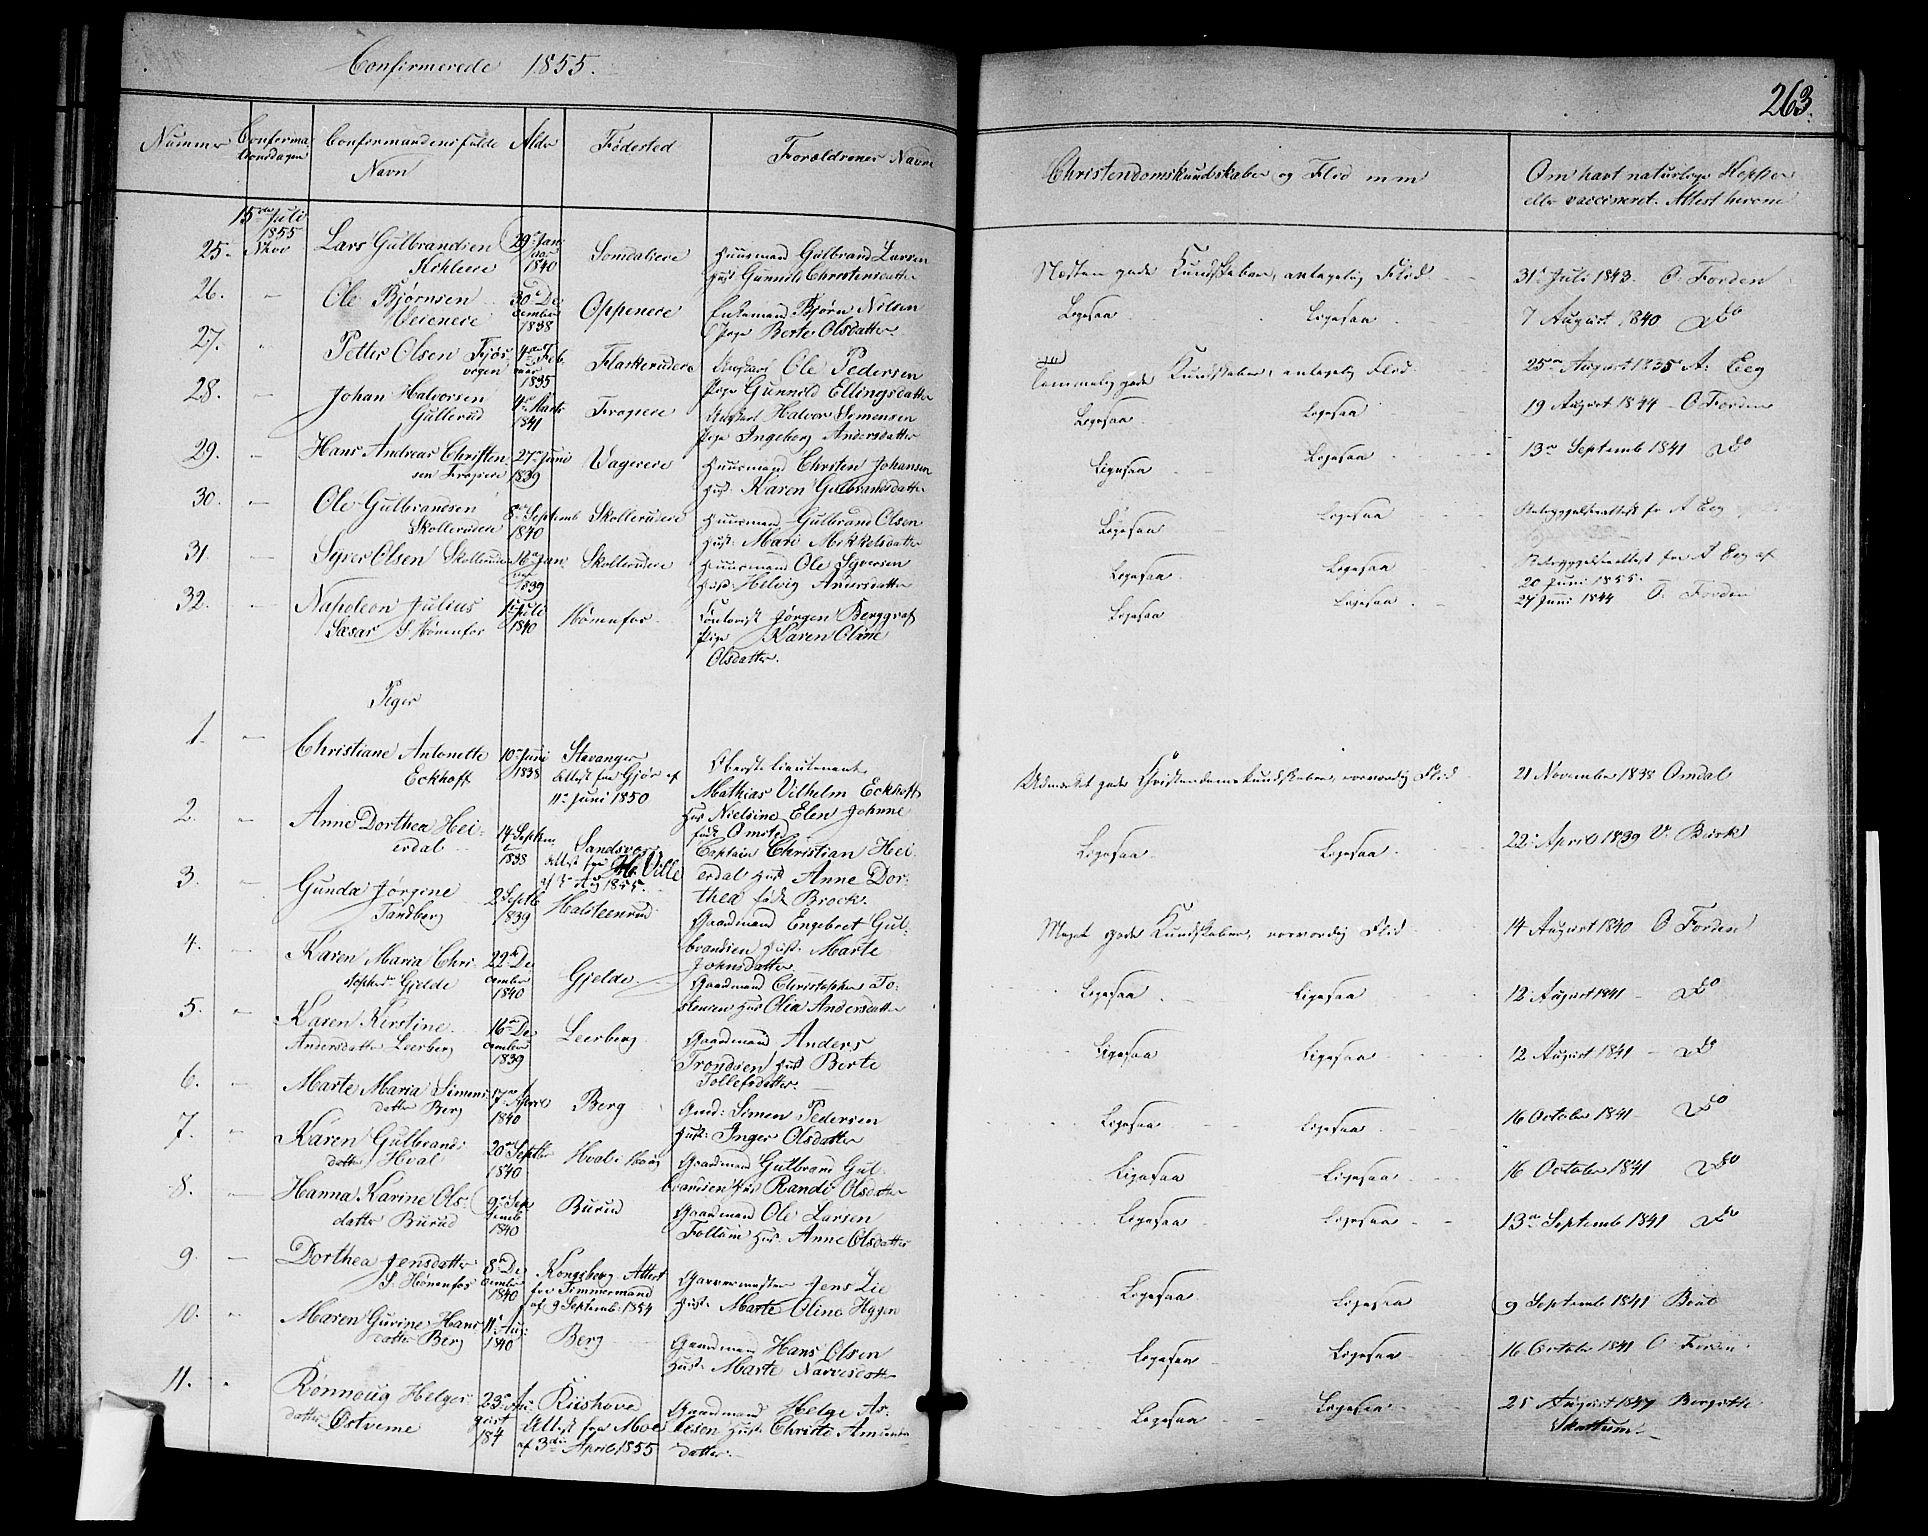 Confirmerede 1855.
263.
Nummer
Confirma
tionsdagen
Confirmandens fulde
Navn
Alder
Fødested
Forældrenes Navn
Christendomskundskaber og Flid m m
Om havt naturlige Kopper
eller vaccineret. Attest herom
15 Juli
1855
25. Lars Gulbrandsen
29 Jan
1840
Somdaliere Huusmand Gulbrand Larsen
Hust Gunnild Christensdatter
Næsten gode Kundskaber, antagelig Flid
31 Juli 1843. O Forden
26. Ole Bjørnsen
Veienere
30 De
cember
1838
Oppenere Enkemand Bjørn Nilsen
Pige Berte Olsdatter
Ligesaa Ligesaa
7 August 1840 Do
27. Petter Olsen
4 Feb
1835
Flaskerudere Ungkarl Ole Pedersen
Pige Gunnild Ellingsdatter
Temmelig gode Kundskaber, antagelig Flid
25 August 1835 A: Eeg
28. Johan Halvorsen
Gullerud
4 Marts
1841
Frogiere Ungkarl Halvor Simensen
Pige Ingeborg Andersdatter
Ligesaa Ligesaa
19 August 1844 - O Forden
29. Hans Andreas Christen
sen Frogiere
27 Juni
1839
Vagerere Huusmand Christen Johansen
Hust. Karen Gulbrandsdatter
Ligesaa Ligesaa
13 Septemb 1841 Do
30. Ole Gulbrandsen
Skollerudere
8 Septemb
1840
Skollerudere Huusmand Gulbrand Olsen
Hust: Mari Mikkelsdatter
Ligesaa Ligesaa
A Eeg
31. Syver Olsen Skollerudere
16 Jan
1839
Skollerudere Huusmand Ole Syversen
Hust: Helvig Andersdatter
Ligesaa Ligesaa
A Eeg af
20 Juni 1855.
32. Napoleon Julius
Cæsar S. Hønenfos
1 Juli
1840
Hønenfos Jørgen Berggraf
Pige Karen Oline
Olsdatter.
Ligesaa Ligesaa
24 Juni 1844 O. Forden
Piger
1. Christiane Antonette
Eckhoff
10 Juni
1838
Stavanger
Attest fra Gjør af
11 Juni 1850
Oberstelieutenant
Mathias Vilhelm Eckhoff
Hus Nielsine Elen Johnne
født Omsted
Udmærket gode Christendomskundskaber, roesværdig Flid
21 November 1838 Omdal
2. Anne Dorthea Hei-
erdal
14 Septem
1838
Attest fra H. Wille
af 5 Aug 1855.
Captain Christian Hei-
erdal Hust Anne Dor-
thea født Brock.
Ligesaa Ligesaa
22 April 1839 V. Birk
3. Gunda Jørgine
Tandberg
2 Septb
1839
Halsteenrud
Gaardmand Engebret Gul-
brandsen Hust. Marte
Johnsdatter
Meget gode Kundskaber, roesværdig Flid
14 August 1840 O Forden
4. Karen Maria Chri
stophersen Gjelde
22 De
cember
1840
Gjelde
Gaardmand Christopher To-
stensen Hus Olia Andersdatter
Ligesaa Ligesaa
12 August 1841 - Do
5. Karen Kirstine
Andersdatter Leerberg
16 De
cember
1839
Leerberg
Gaardmand Anders
Trondsen Hus Berte
Tollefsdatter.
Ligesaa Ligesaa
12 August 1841 - Do
6. Marte Maria Simens
datter Berg
17 April
1840
Berg
Gmd: Simen Pedersen
Hust: Inger Olsdatter
Ligesaa Ligesaa
16 October 1841 - Do
7. Karen Gulbrands
datter Hval
20 Septbr
1840
Gaardmand Gulbrand Gul-
brandsen Hus Randi Olsdatter
Ligesaa Ligesaa
16 October 1841 Do
8. Hanna Karine Ols-
datter Burud
9 Sep
temb
1840
Burud
Gaardmand Ole Larsen
Follum Hus. Anne Olsdatter
Ligesaa Ligesaa
13 Septemb 1841 Do
9. Dorthea Jensdatter
S. Hønenfos
8 De
cember
1840
Kongsberg Attest
fra Timmermand
af 9 Septemb: 1854
Garvermester Jens Lie
Hust. Marte Oline Hygen
Ligesaa Ligesaa
9 Septemb 1841
10. Maren Gurine Hans
datter Berg
11 Aug:
1840
Berg
Gaardmand Hans Olsen
Hust. Marte Narvesdatter
Ligesaa Ligesaa
16 October 1841 O Forden
11. Rønnoug Helges
datter Østveme
23 Au
gust
184
Attest fra Moe
af 3die April 1855
Gaardmand Helge As-
lesen Hust. Christi Amunds
datter.
Ligesaa Ligesaa
25 August 1847 Bergitte
Skattum